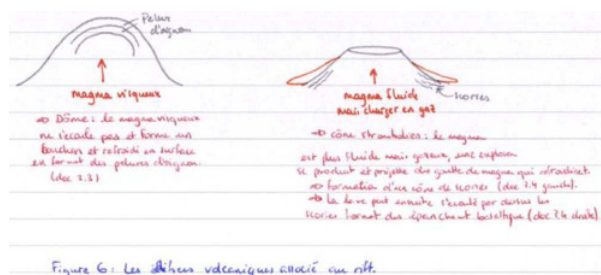 Pelure
d'oignon
magma visqueux
⇒ Dôme : le magma visqueux
ne s'écoule pas et forme un
bouchon et refroidi en surface
en formant des pelures d'oignon.
(doc 3.3)
magma fluide
mais charger en gaz
scories
⇒ cône strombolien : le magma
est plus fluide mais gazeux, une explosion
se produit et projette des goutte de magma qui refroidissent
⇒ formation d'un cône de scories (doc 2.4 gauche).
⇒ la lave peut ensuite s'écouler par dessus les
scories formant des épanchements basaltique (doc 2.4 droite)
Figure 6 : Les édifices volcaniques associé au rift.